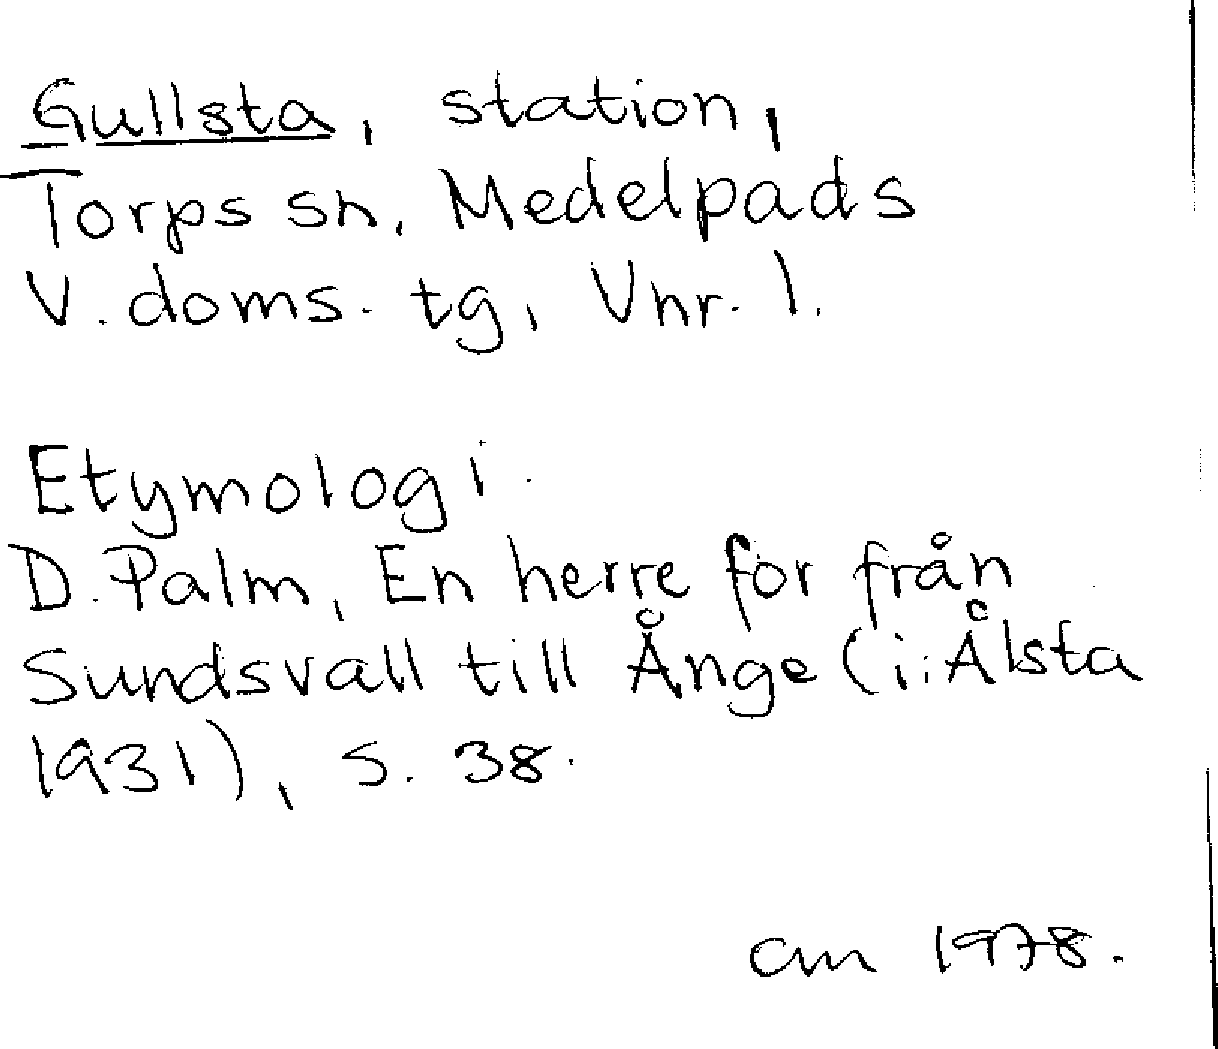 Gullsta, station,
Torps sn, Medelpads
V. doms. tg, Vnr. 1.
Etymologi.
D. Palm, En herre for från
Sundsvall till Ånge (i: Ålsta
1931), s. 38.
cm 1978.